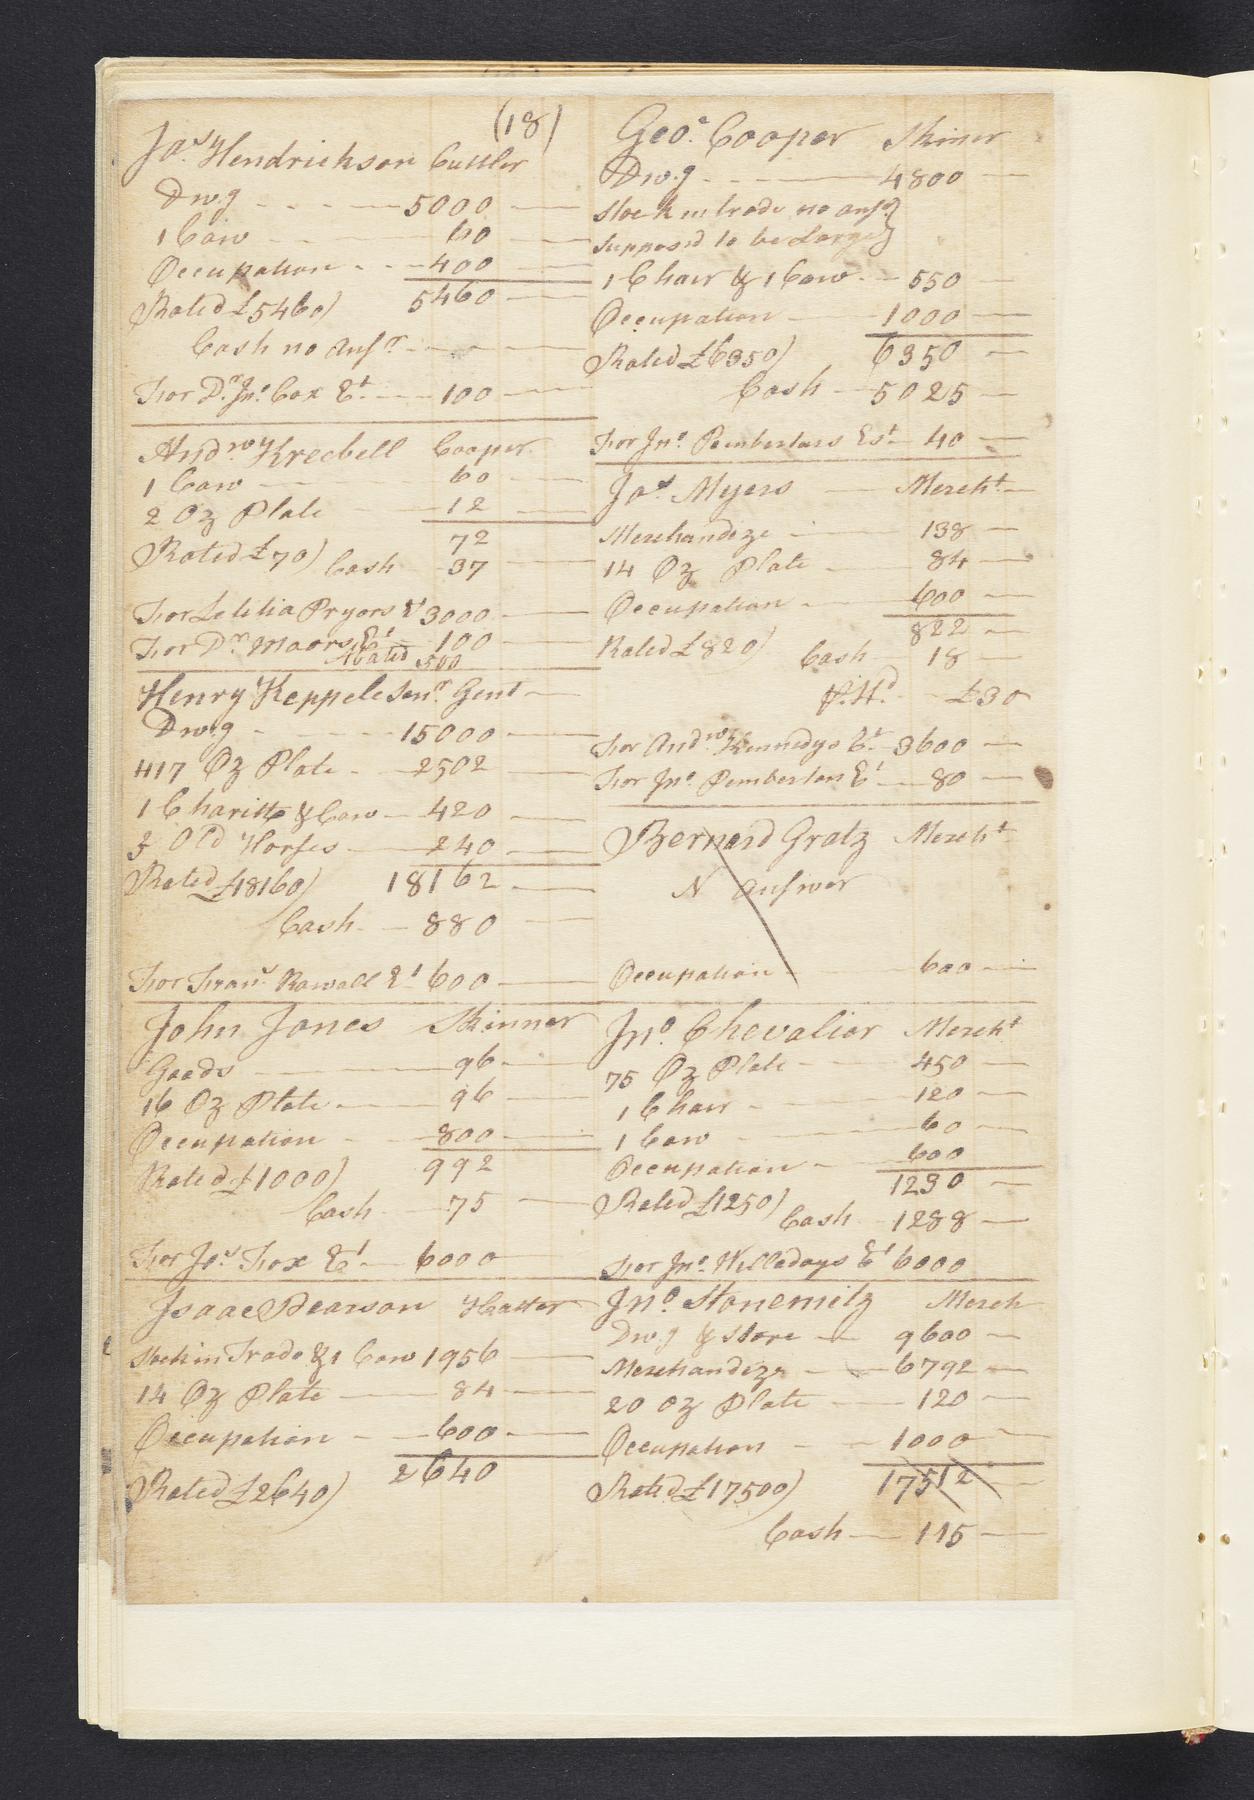 (18)
Jas. Hendrickson Cuttler
Dwg 5000
1 Cow 60
Occupation 400
Rated £5460) 5460
Cash no Ansr.
For Dr. Jno. Cox Et. 100
Andw. Krecbell Cooper
1 Cow 60
2 Oz Plate 12
72
Rated £70) Cash 37
For Letitia Pryors Et 3000
For Dr. Moors Et 100
Abated 500
Henry Keppele Senr. Gent
Dwg 15000
417 Oz Plate 2502
1 Charitt & Cow 420
3 Old Horses 240
Rated £18160) 18162
Cash 880
For Frans. Rawall Et 600
John Jones Skinner
Goods 96
16 Oz Plate 96
Occupation 800
Rated £1000) 992
Cash 75
For Jos. Fox Et 6000
Isaac Pearson Hatter
Stock in Trade & 1 Cow 1956
14 Oz Plate 84
Occupation 600
Rated £2640) 2640
Geo. Cooper Skiner
Dwg 4800
Stock in trade no ansr}
supposd to be Large}
1 Chair & 1 Cow 550
Occupation 1000
Rated £6350) 6350
Cash 5025
For Jno. Pembertons Est. 40
Jos. Myers Mercht.
Merchandize 138
14 Oz Plate 84
Occupation 600
822
Rated £820) Cash 18
P. Hd. £30
For Andw. Kennedys Et. 3600
For Jno. Pemberton Et 80
Bernard Gratz Mercht
N Answer
Occupation 600
Jno. Chevalier Mercht
75 Oz Plate 450
1 Chair 120
1 Cow 60
Occupation 600
1230
Rated £1250) Cash 1288
For Jno. Willedays Et 6000
Jno. Stonemitz Merch
Dwg & Store 9600
Merchandize 6792
20 oz Plate 120
Occupation 1000
Rated £17500) 17512
Cash 115